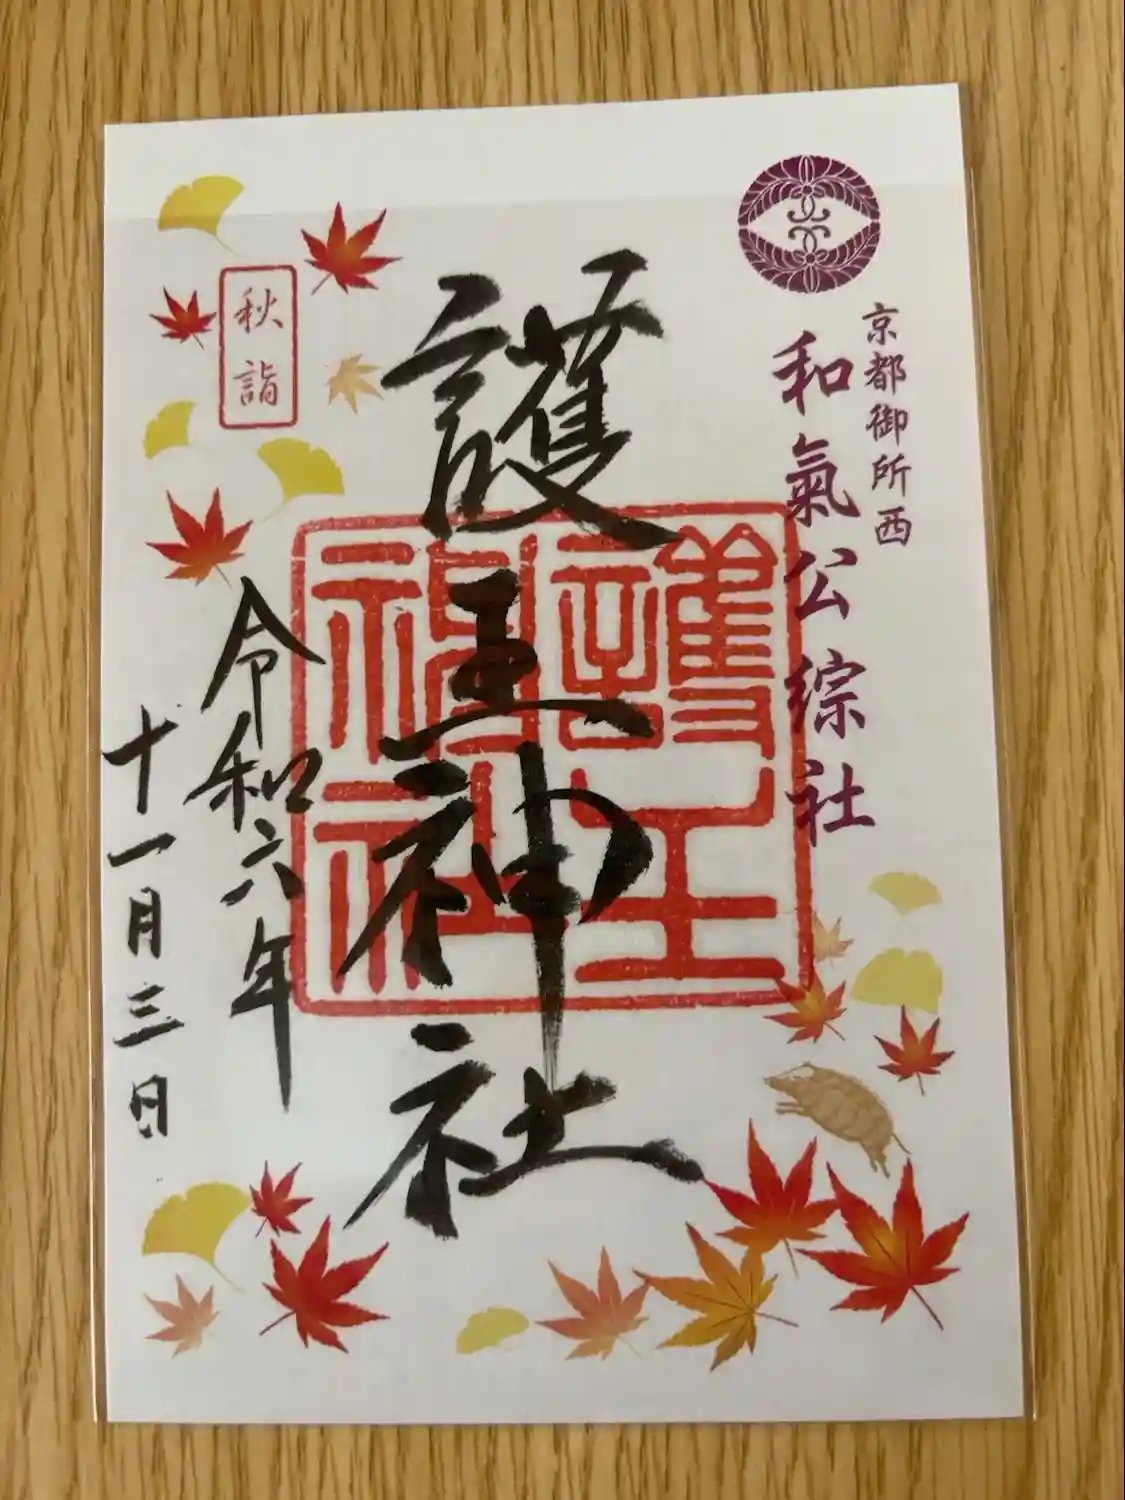 京都御所西
和氣公綜社
護王神社
護王神社
秋詣
令和六年
十一月三日